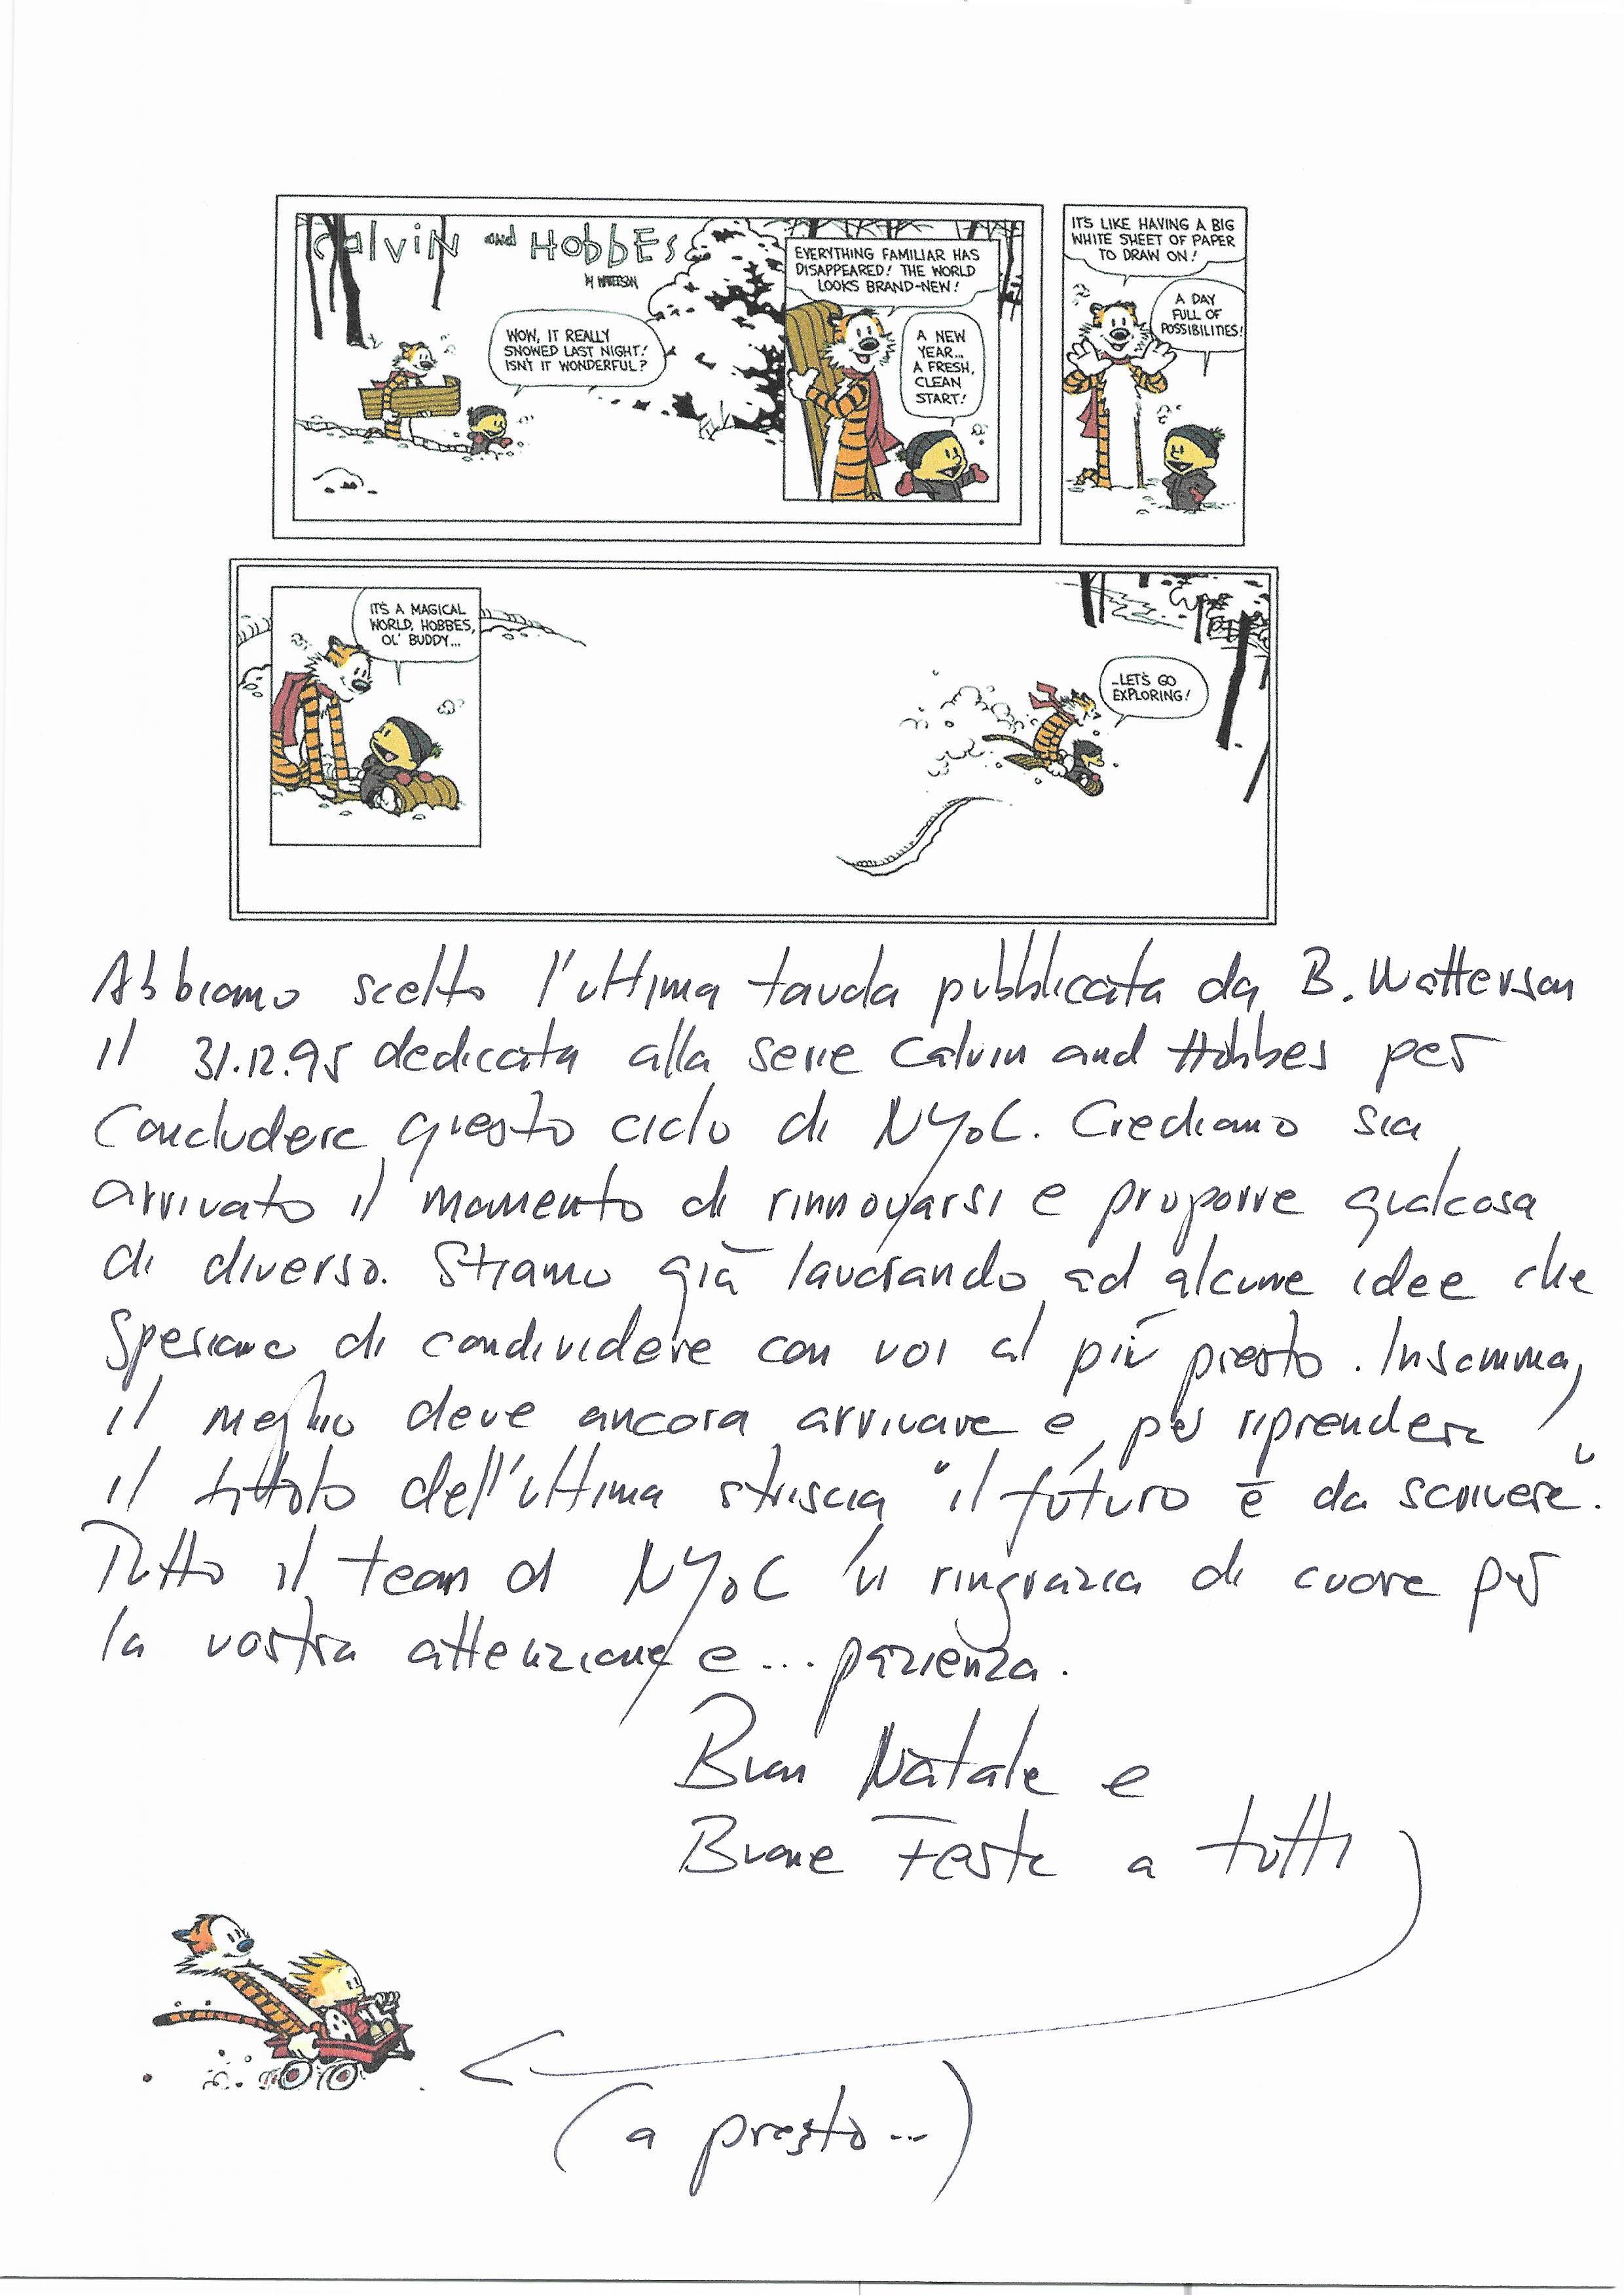 Calvin and Hobbes
by WATTERSON
WOW, IT REALLY
SNOWED LAST NIGHT!
ISN'T IT WONDERFUL?
EVERYTHING FAMILIAR HAS
DISAPPEARED! THE WORLD
LOOKS BRAND-NEW!
A NEW
YEAR...
A FRESH,
CLEAN
START!
IT'S LIKE HAVING A BIG
WHITE SHEET OF PAPER
TO DRAW ON!
A DAY
FULL OF
POSSIBILITIES!
IT'S A MAGICAL
WORLD, HOBBES,
OL' BUDDY...
...LET'S GO
EXPLORING!
Abbiamo scelto l'ultima tavola pubblicata da B. Watterson
il 31.12.95 dedicata alla serie Calvin and Hobbes per
concludere questo ciclo di NYoC. Crediamo sia
arrivato il momento di rinnovarsi e proporre qualcosa
di diverso. Stiamo già lavorando ad alcune idee che
speriamo di condividere con voi al più presto. Insomma,
il meglio deve ancora arrivare e, per riprendere
il titolo dell'ultima striscia "il futuro è da scrivere".
Tutto il team di NYoC vi ringrazia di cuore per
la vostra attenzione e... pazienza.
Buon Natale e
Buone Feste a tutti
(a presto...)